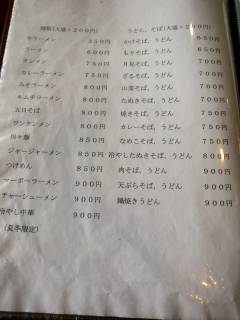 麺類(大盛+200円)
半ラーメン 550円
ラーメン 650円
タンメン 750円
カレーラーメン 750円
みそラーメン 800円
キムチラーメン 800円
五目そば 800円
ワンタンメン 800円
坦々麺 850円
ジャージャーメン 850円
つけめん 850円
マーボーラーメン 900円
チャーシューメン 900円
冷やし中華 900円
(夏季限定)
うどん、そば(大盛+200円)
かけそば、うどん 650円
もりそば、うどん 650円
月見そば、うどん 700円
ざるそば、うどん 750円
山菜そば、うどん 750円
たぬきそば、うどん 700円
焼きそば、うどん 750円
カレーそば、うどん 750円
なめこそば、うどん 750円
冷やしたぬきそば、うどん 800円
肉そば、うどん 850円
天ぷらそば、うどん 900円
鍋焼きうどん 900円